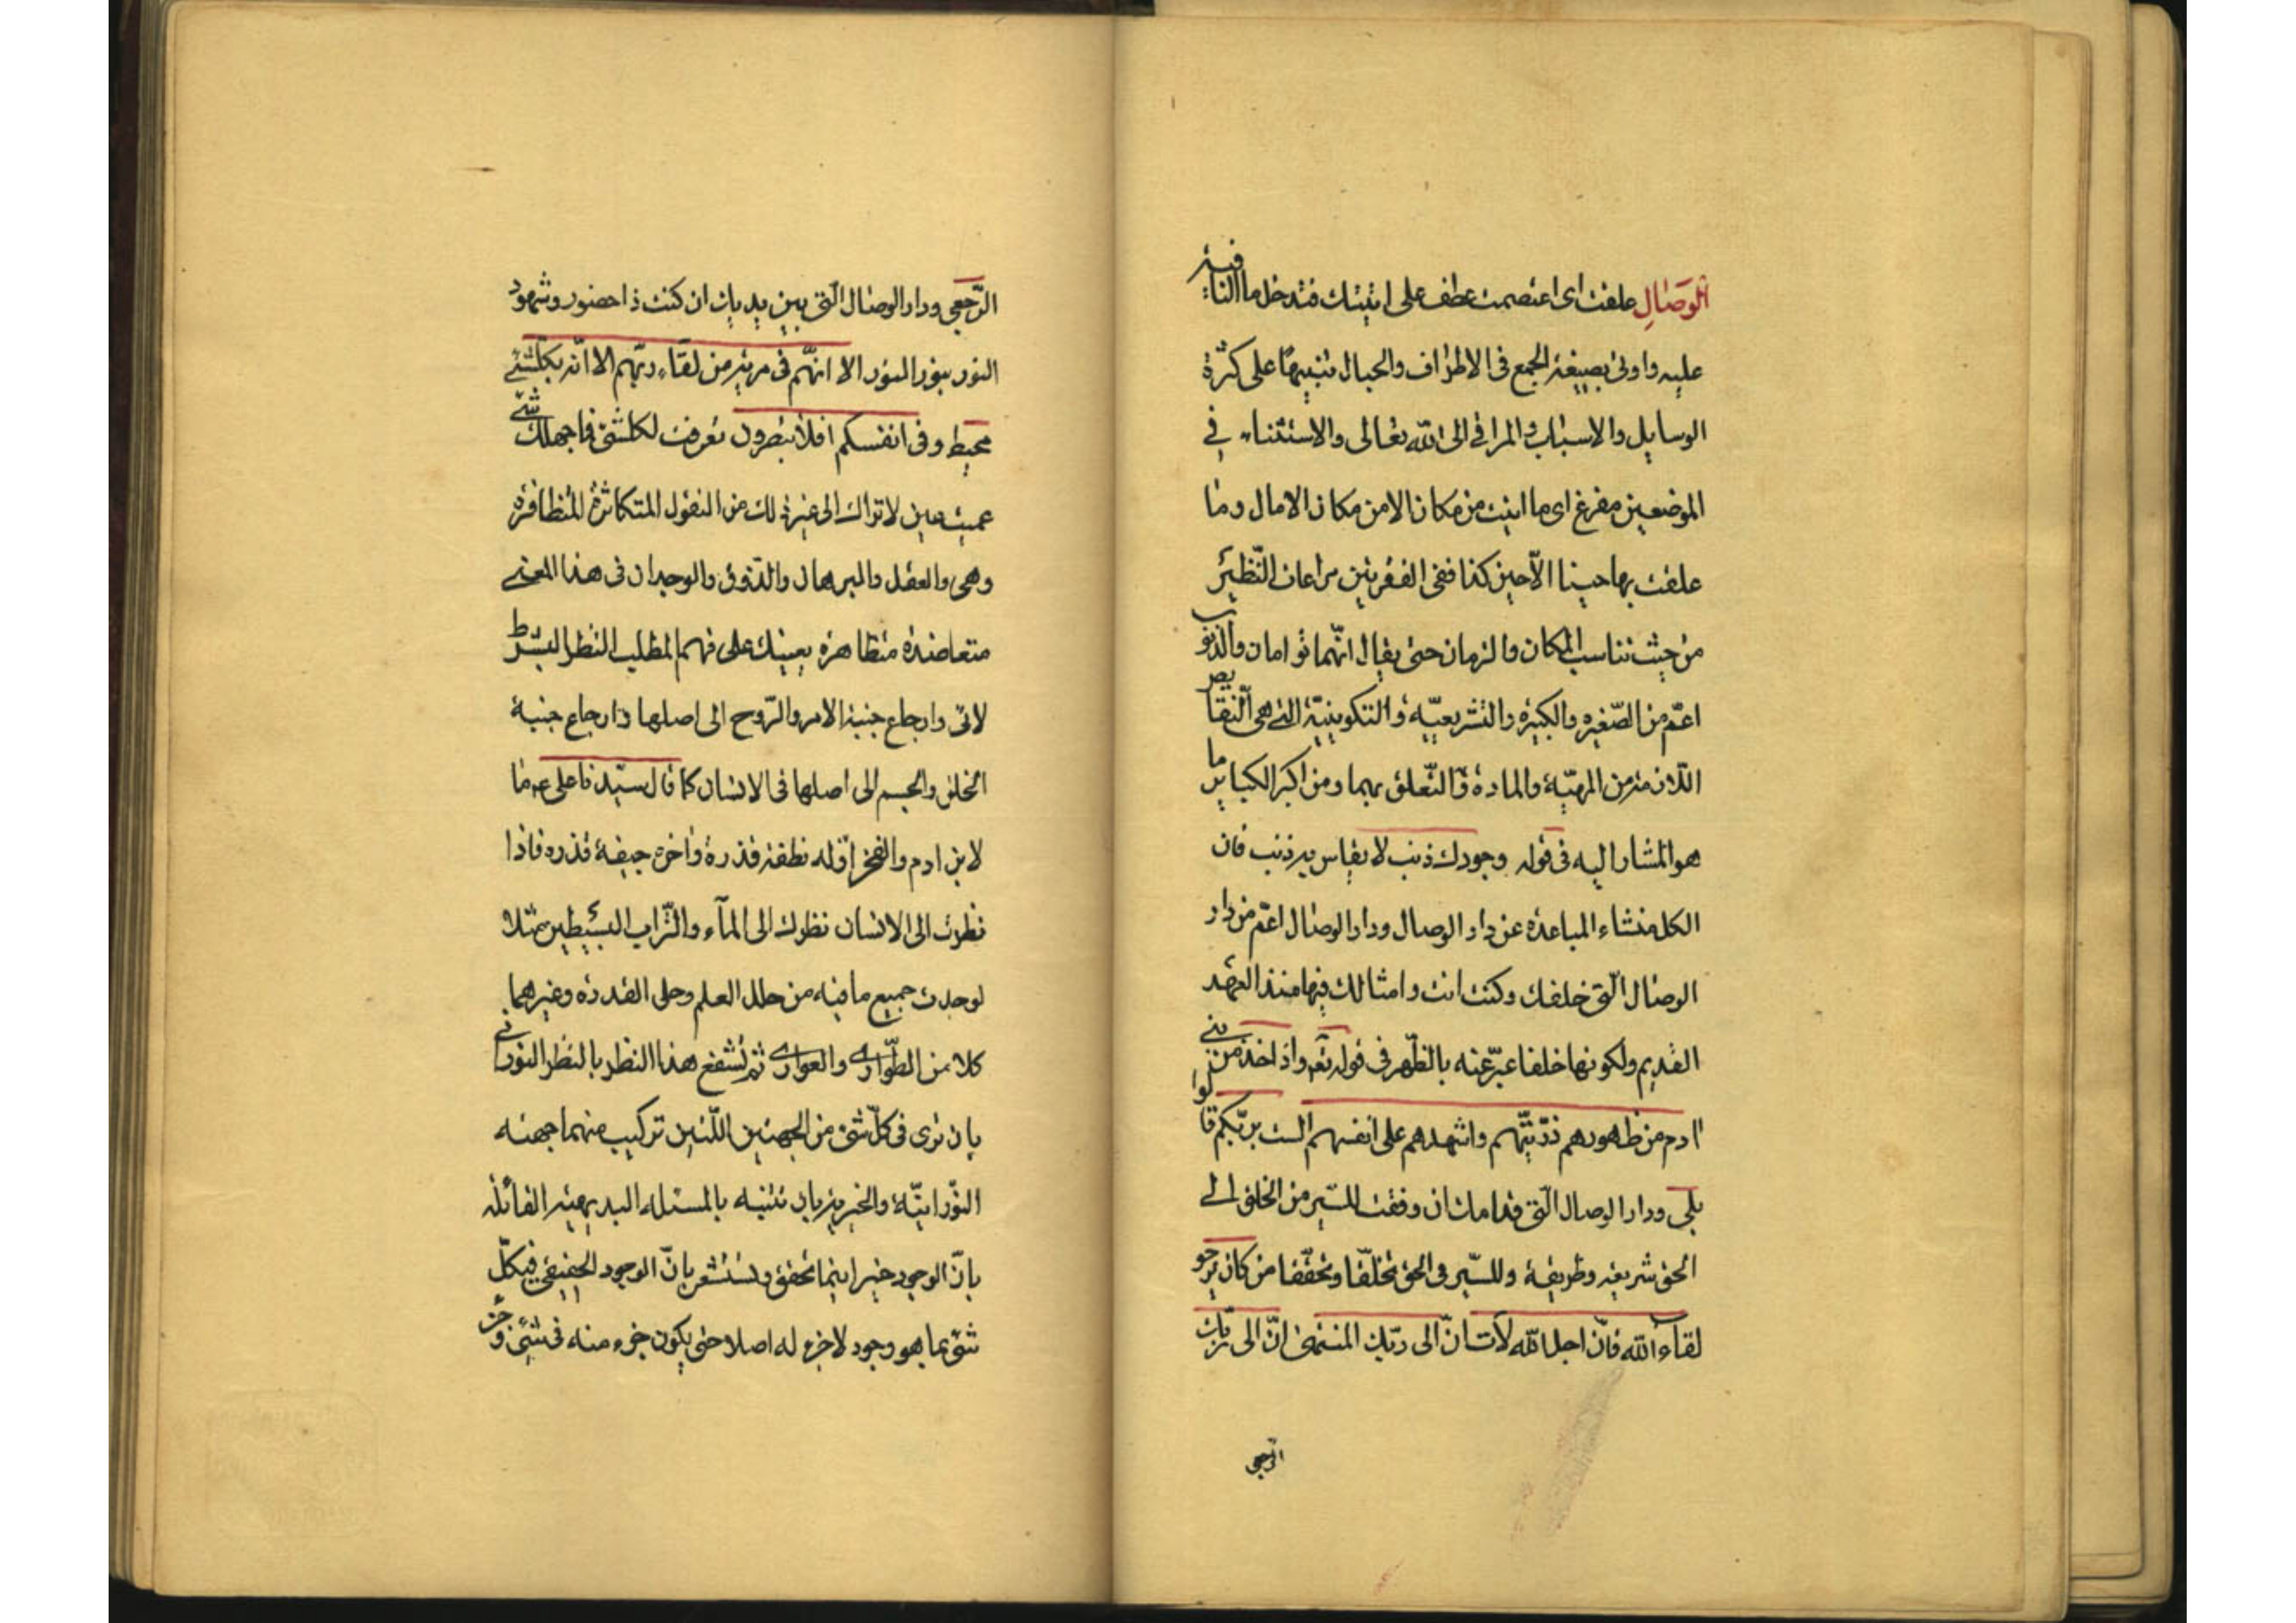 الوصال علقت ای اعتصمت عطف علی اتیتك فتدخل ما النافیة
علیه واوتی بصیغة الجمع فی الاطراف والحبال تنبیها علی كثرة
الوسایل والاسباب والمراقی الی الله تعالی والاستثناء فی
الموضعین مفرغ ای ما اتیت من مكان الا من مكان الامال وما
علقت بها حینا الا حین كذا ففی الفقرتین مراعات النظیر
من حیث تناسب المكان والزمان حتی یقال انهما توامان والذنوب
اعم من الصغیره والكبیره والتشریعیه والتكوینیة التی هی النقایص
اللازمة من المهیة والمادة والتعلق بهما ومن اكبر الكبایر ما
هو المشار الیه فی قوله وجودك ذنب لا یقاس به ذنب فان
الكل منشاء المباعدة عن دار الوصال ودار الوصال اعم من دار
الوصال التی خلفك وكنت انت وامثالك فیها منذ العهد
القدیم ولكونها خلفا عبر عنه بالظهر فی قوله تع واذ اخذ من بنی
ادم من ظهورهم ذریتهم واشهدهم علی انفسهم الست بربكم قالوا
بلی ودار الوصال التی قدامك ان وفقت للسیر من الخلق الی
الحق شریعه وطریقة وللسیر فی الحق تخلقا وتحققا من كان یرجو
لقاء الله فان اجل الله لات ان الی ربك المنتهی ان الی ربك
الرجعی
الرجعی ودار الوصال التی بین یدیك ان كنت ذا حضور وشهود
النور بنور النور الا انهم فی مریة من لقاء ربهم الا انه بكلشئ
محیط وفی انفسكم افلا تبصرون تعرفت لكلشئ فما جهلك شئ
عمیت عین لا تراك الی غیر ذلك من النقول المتكاثرة المتظافرة
وهی والعقل والبرهان والذوق والوجدان فی هذا المعنی
متعاضدة متظاهرة یعینك علی فهم المطلب النظر البشرط
لائی وارجاع جنبة الامر والروح الی اصلها وارجاع جنبة
الخلق والجسم الی اصلها فی الانسان كما قال سیدنا علی ع ما
لابن ادم والفخر اوله نطفة قذرة واخره جیفة قذره فاذا
نظرت الی الانسان نظرك الی المآء والتراب البسیطین مثلا
لوجدت جمیع ما فیه من حلل العلم وحلی القدرة وغیرهما
كلا من الطواری والعواری ثم تشفع هذا النظر بالنظر النورانی
بان تری فی كل شئ من الجهتین اللتین تركیب منهما جهته
النورانیة والخیریة بان تثنیه بالمسئله البدیهیة القائله
بان الوجود خیر اینما تحقق وتستشعر بان الوجود الحقیقی فی كل
شئ بما هو وجود لا جزء له اصلا حتی یكون جزء منه فی شئ وجزء